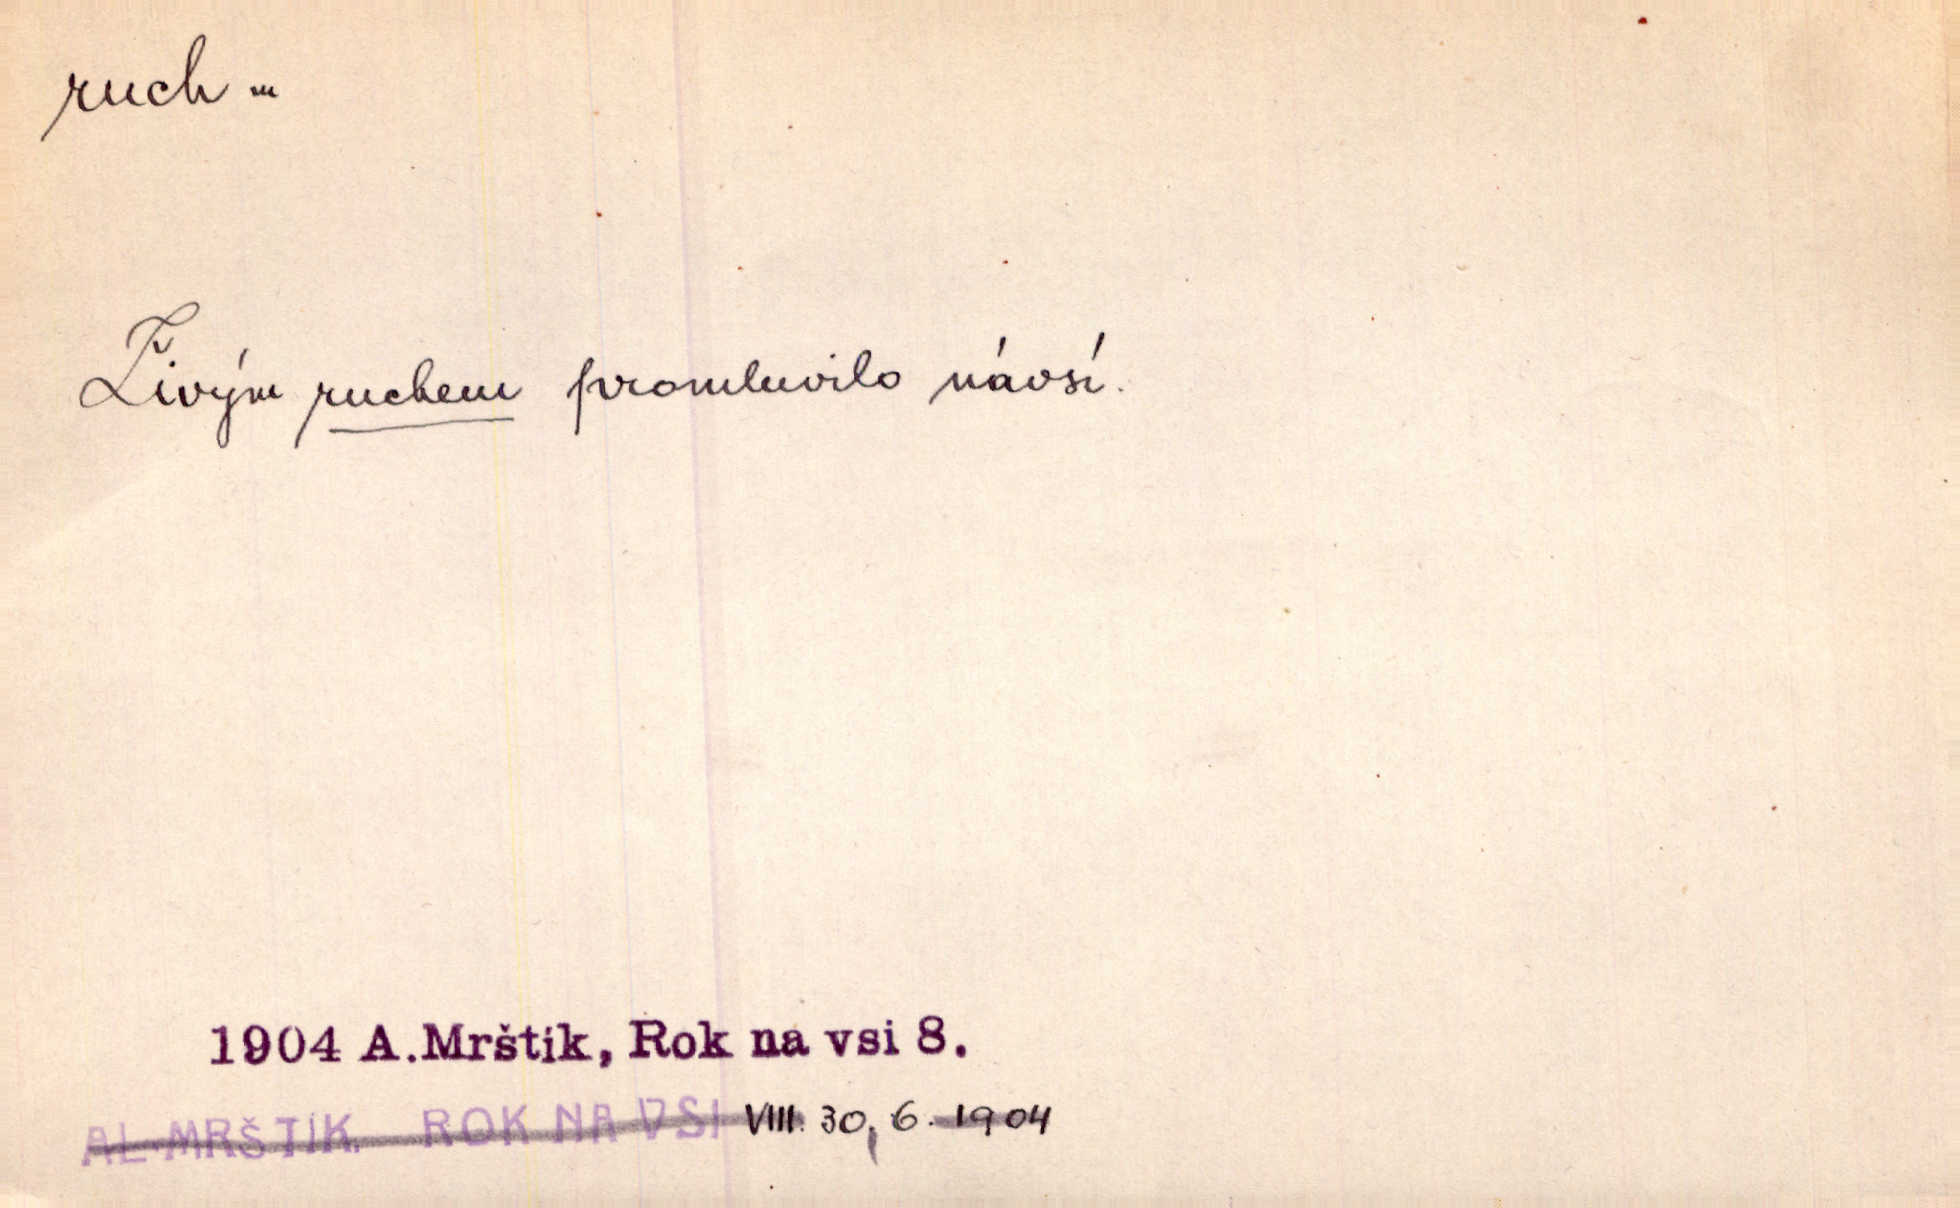 ruch m
Živým ruchem promluvilo návsí.
1904 A.Mrštík, Rok na vsi 8.
AL. MRŠTÍK. ROK NA VSI VIII. 30, 6. 1904